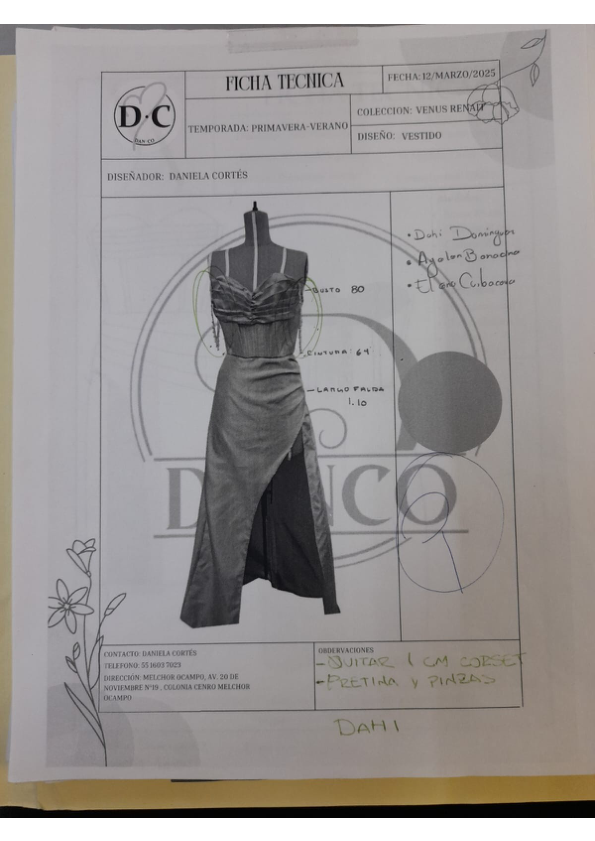 D·C
DAN·CO
FICHA TECNICA
FECHA: 12/MARZO/2025
TEMPORADA: PRIMAVERA-VERANO
COLECCION: VENUS RENAIT
DISEÑO: VESTIDO
DISEÑADOR: DANIELA CORTÉS
• Dahi Domínguez
• Ayelen
•
BUSTO 80
CINTURA: 64
LARGO FALDA
1.10
DANCO
CONTACTO: DANIELA CORTÉS
TELEFONO: 55 1603 7023
DIRECCIÓN: MELCHOR OCAMPO, AV. 20 DE
NOVIEMBRE Nº19 , COLONIA CENRO MELCHOR
OCAMPO
OBSERVACIONES
- QUITAR 1 CM CORSET
- PRETINA Y PINZAS
DAHI